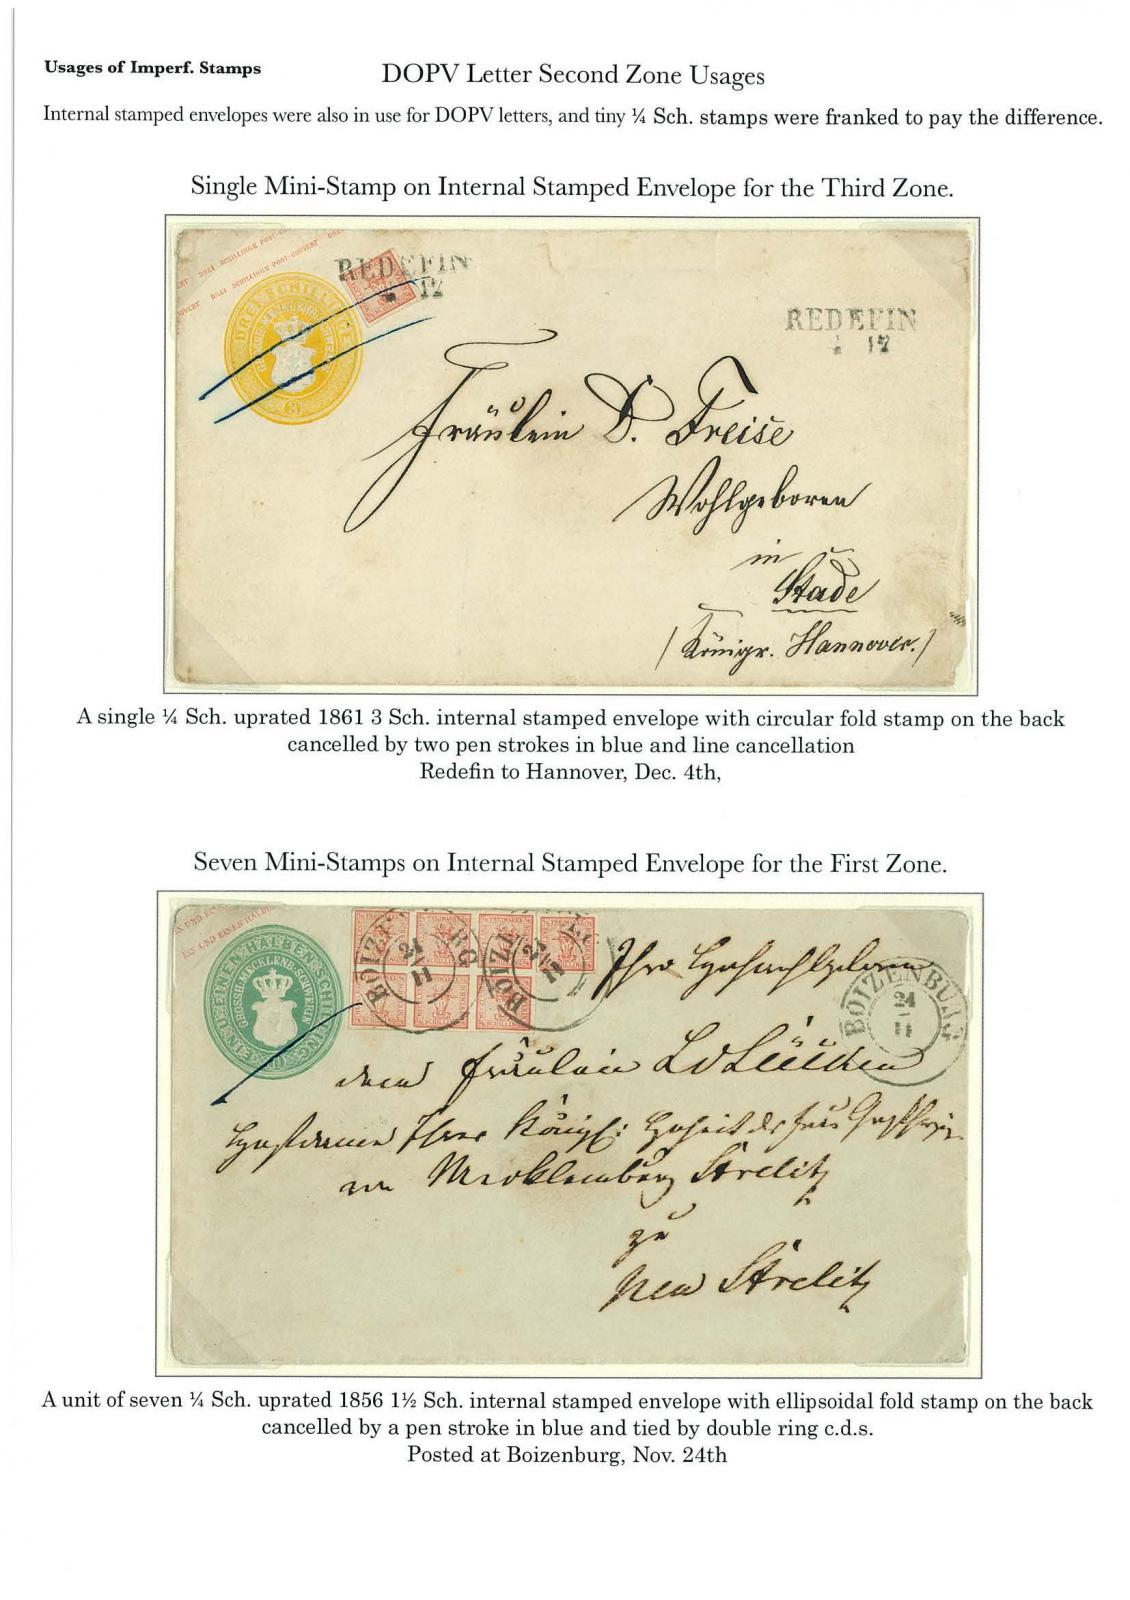 Usages of Imperf. Stamps
DOPV Letter Second Zone Usages
Internal stamped envelopes were also in use for DOPV letters, and tiny ¼ Sch. stamps were franked to pay the difference.
Single Mini-Stamp on Internal Stamped Envelope for the Third Zone.
DREI SCHILLINGE POST-COUVERT
DREI SCHILLINGE
REDEFIN
4 12
REDEFIN
4 12
Fräulein D. Freise
Wohlgeboren
in
Stade
(Königr. Hannover.)
A single ¼ Sch. uprated 1861 3 Sch. internal stamped envelope with circular fold stamp on the back
cancelled by two pen strokes in blue and line cancellation
Redefin to Hannover, Dec. 4th,
Seven Mini-Stamps on Internal Stamped Envelope for the First Zone.
EIN UND EINEN HALBEN SCHILLING
GROSSH. MECKLENB. SCHWERIN
BOIZENBURG
24
11
BOIZENBURG
24
11
Ihro
BOIZENBURG
24
11
dem Fräulein
Ihrer Königl: Hoheit der Frau
von Mecklenburg Strelitz
zu
Neu Strelitz
A unit of seven ¼ Sch. uprated 1856 1½ Sch. internal stamped envelope with ellipsoidal fold stamp on the back
cancelled by a pen stroke in blue and tied by double ring c.d.s.
Posted at Boizenburg, Nov. 24th